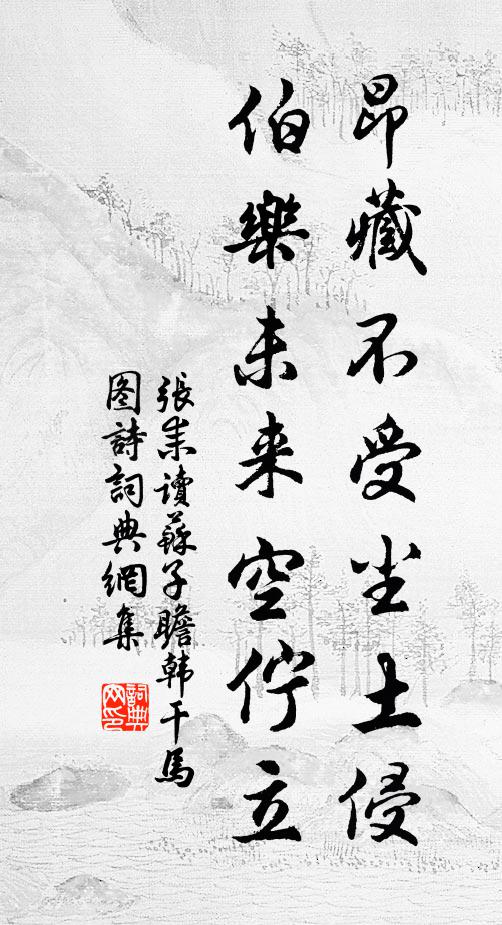 昂藏不受尘土侵
伯樂未来空佇立
張耒讀蘇子瞻韓干馬
图詩詞典網集
詞典
网印